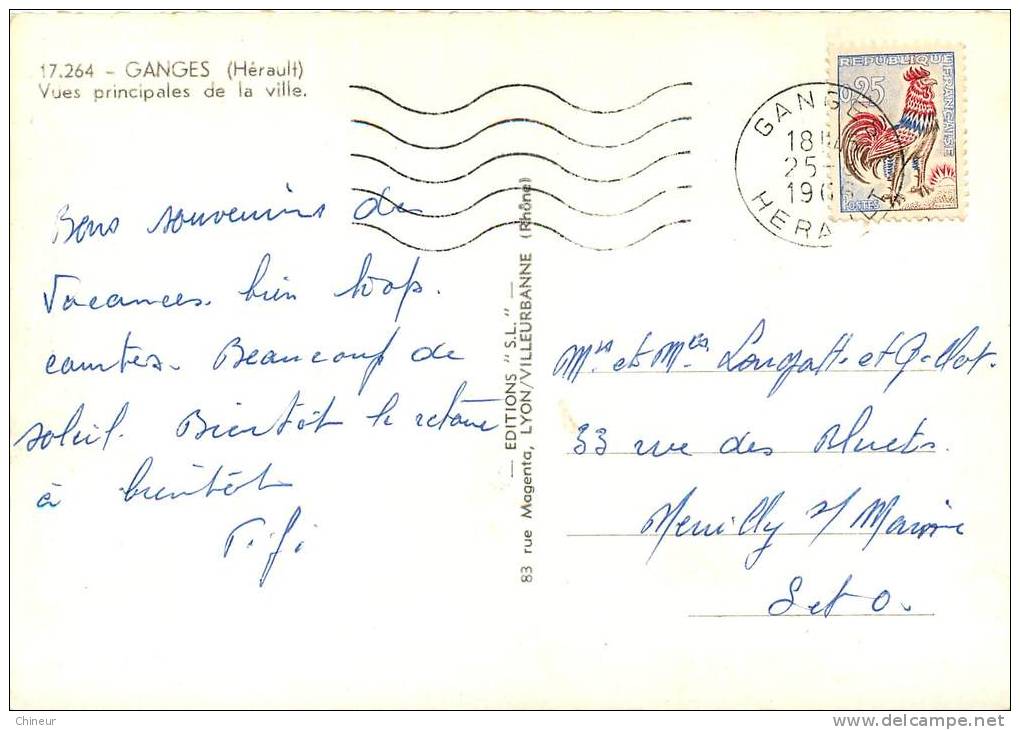 17.264 – GANGES (Hérault)
Vues principales de la ville.
Bons souvenirs de
Vacances bien trop.
courtes. Beaucoup de
soleil. Bientôt le retour
à bientôt
Fifi
— EDITIONS "S.L." —
83 rue Magenta, LYON/VILLEURBANNE (Rhône)
GANGES
18H
25-
196
HERAULT
REPUBLIQUE FRANÇAISE
0,25
POSTES
et
et
33 rue des Bluets
Neuilly s/ Marne
S et O.
Chineur
delcampe.net